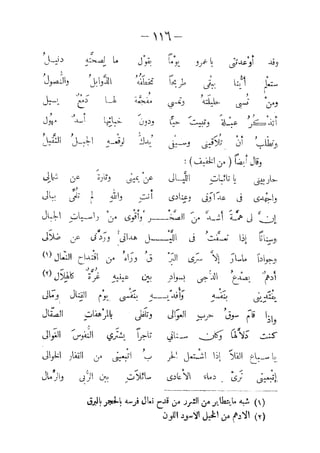 — ١١٦ —
وقد أوعدتنى يا عمرو يومًا بقول ما لصحته دليلُ
ستعلم أيّنا يبقى طريحًا تخطّفه الذّوابل والنّصولُ
ومن تُسبى حليلته وتمسى مفجّعة لها دمعٌ يسيلُ
أتذكر عبلةً وتبيت حيًّا ودون خبائها أسدٌ مهولُ
وتطلب أن تلاقينى وسيفى يُدكّ لوقعه الجبل الثّقيلُ
وقال أيضًا ( من الخفيف ) :
حاربينى يا نائبات اللّيالى عن يمينى وتارة عن شمالى
واجهدى فى عداوتى وعنادى أنت والله لم تلمّى ببالى
إنّ لى همّة أشدّ من الصّخـر وأقوى من راسيات الجبال
وسنانًا إذا تعسّفت فى اللّيـل هدانى وردّنى عن ضلالى
وجوادًا ما سار إلّا سرى البرْ ق وراءه من اقتداح النّعال (١)
أدهم يصدع الدّجى بسواد بين عينيه غرّة كالهلال (٢)
يفتدينى بنفسه وأفدّيـه بنفسى يوم القتال ومالى
وإذا قام سوق حرب العوالى وتلظّى بالمرهفات الصّقال
كنت دلّالها وكان سنانى تاجرًا يشترى النّفوس الغوالى
يا سباع الفلا إذا اشتعل الحر ب اتبعينى من القفار الخوالى
إتبعينى ترى دماء الأعادى سائلات بين الرّبى والرّمال
(١) شبه ما يتطاير من الشرر من قدح نعال فرسه بالحجر بالبرق
(٢) الادهم من الخيل الاسود اللون